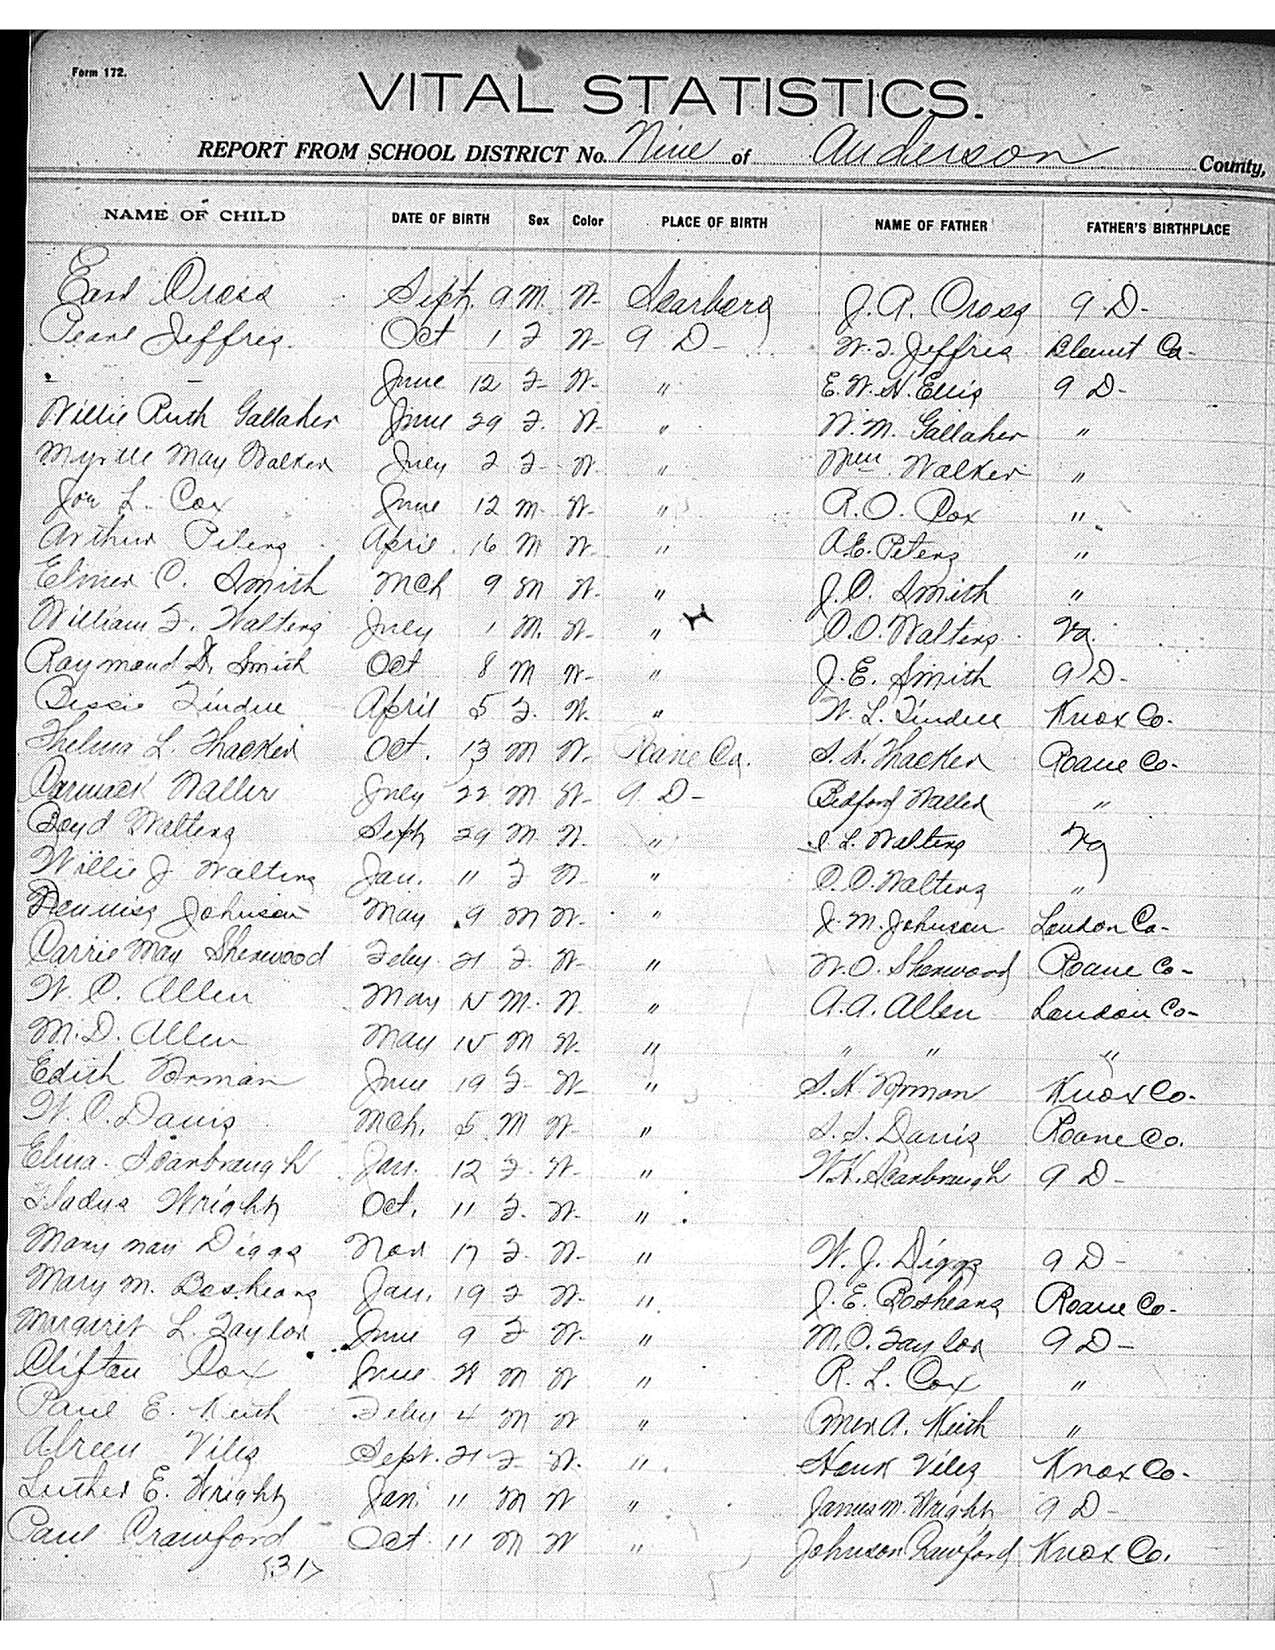 Form 172.
VITAL STATISTICS.
REPORT FROM SCHOOL DISTRICT No. Nine of Anderson County,
NAME OF CHILD DATE OF BIRTH Sex Color PLACE OF BIRTH NAME OF FATHER FATHER'S BIRTHPLACE
Earl Cross Sept. 9 M. W- J. A. Cross 9 D-
Pearl Jeffres Oct 1 F W- 9 D- W. F. Jeffres Blount Co-
June 12 F- W- " E. W. H. Ellis 9 D-
Willie Ruth Gallaher June 29 F. W. " W. M. Gallaher "
Myrtle May Walker July 2 F- W. " Wm. Walker "
Joe L. Cox June 12 M. W- " R. O. Cox "
Arthur Peters April 16 M W- " A. E. Peters "
Elmer C. Smith Mch 9 M W- " J. C. Smith "
William F. Walters July 1 M. W- " C. C. Walters Va
Raymond D. Smith Oct 8 M W- " J. E. Smith 9 D-
Bessie Tindell April 5 F. W. " W. L. Tindell Knox Co-
Thelma L. Thacker Oct. 13 M W- Roane Co. S. H. Thacker Roane Co-
Carmack Waller July 22 M W- 9 D- Bedford Waller "
Boyd Walters Sept 29 M W. " L. Walters Va
Willie J Walters Jan. 11 F W- " C. C. Walters "
Dennis Johnson May 9 M W. " J. M. Johnson Loudon Co-
Carrie May Sherwood Feby 21 F. W- " W. O. Sherwood Roane Co-
W. C. Allen May 15 M. W. " A. A. Allen Loudon Co-
M. D. Allen May 15 M W. " " " "
Edith Norman June 19 F- W- " S. H. Norman Knox Co.
W. C. Davis Mch. 5 M W- " S. S. Davis Roane Co.
Scarbraugh Jan. 12 F. W- " W. H. Scarbraugh 9 D-
Gladys Wright Oct. 11 F. W- "
Mary Diggs Nov 17 F. W- " W. J. Diggs 9 D-
Mary M. Boshears Jan. 19 F W- " J. E. Boshears Roane Co-
Margaret L. Taylor June 9 F W- " M. C. Taylor 9 D-
Clifton Cox June M W " R. L. Cox "
Paul E. Keith Feby 4 M W " A. Keith "
Viles Sept. 21 F- W. " Viles Knox Co-
Luther E. Wright Jan. 11 M W " James M. Wright 9 D-
Paul Crawford Oct. 11 M W " Johnson Crawford Knox Co.
(31)